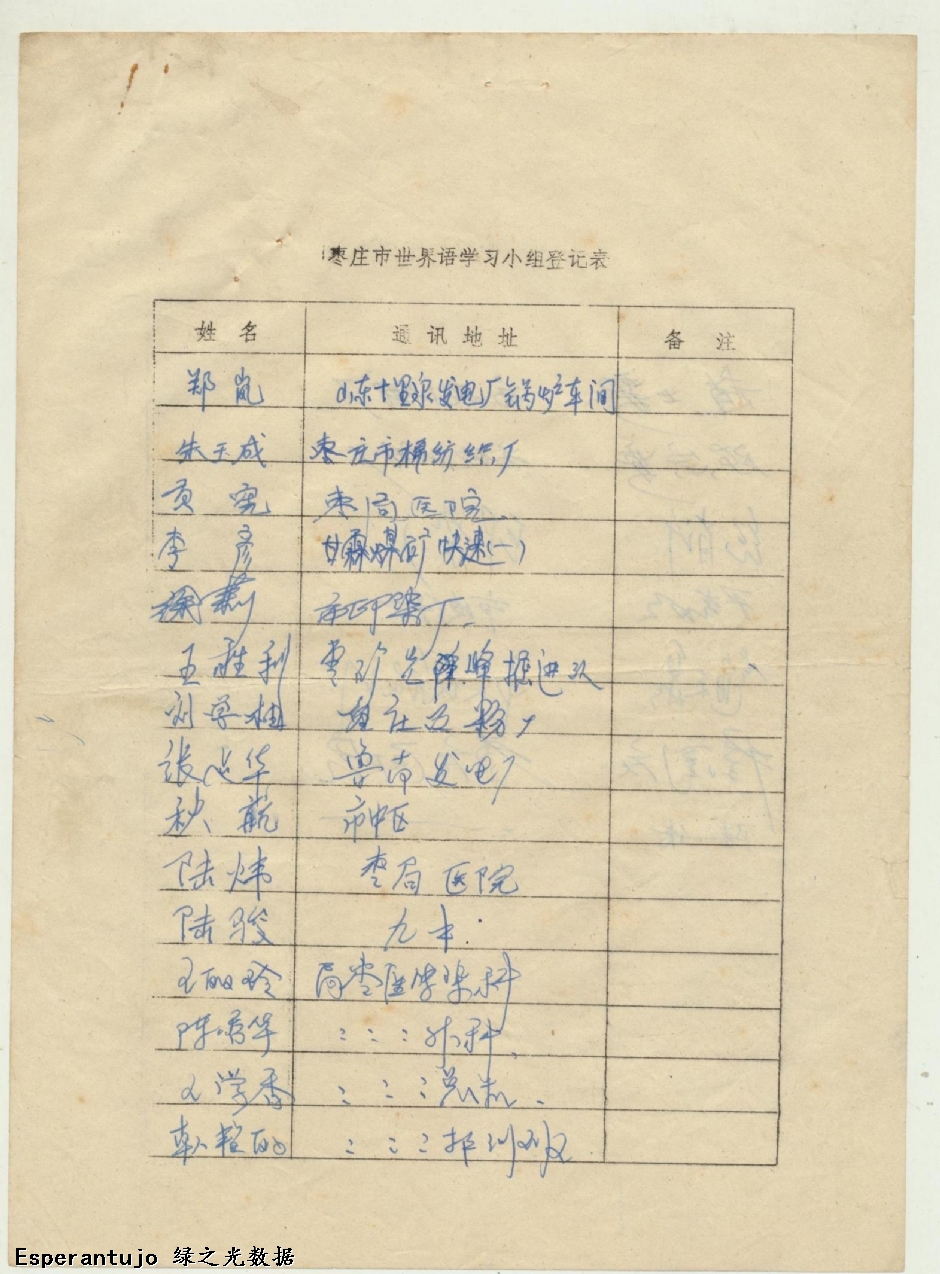 枣庄市世界语学习小组登记表
姓名 通讯地址 备注
郑岚 山东十里泉发电厂锅炉车间
朱玉成 枣庄市棉纺织厂
贡 枣局医院
李彦 甘霖煤矿快速(一)
徐 市印染厂
王胜利 枣矿 掘进队
刘学 枣庄 厂
张 华 鲁南发电厂
秋航 市中区
陆炜 枣局医院
陆骏 九中
王 玲 局枣医传染科
陈 华 :::外科
学香 :::总机
:::培训班
Esperantujo 绿之光数据